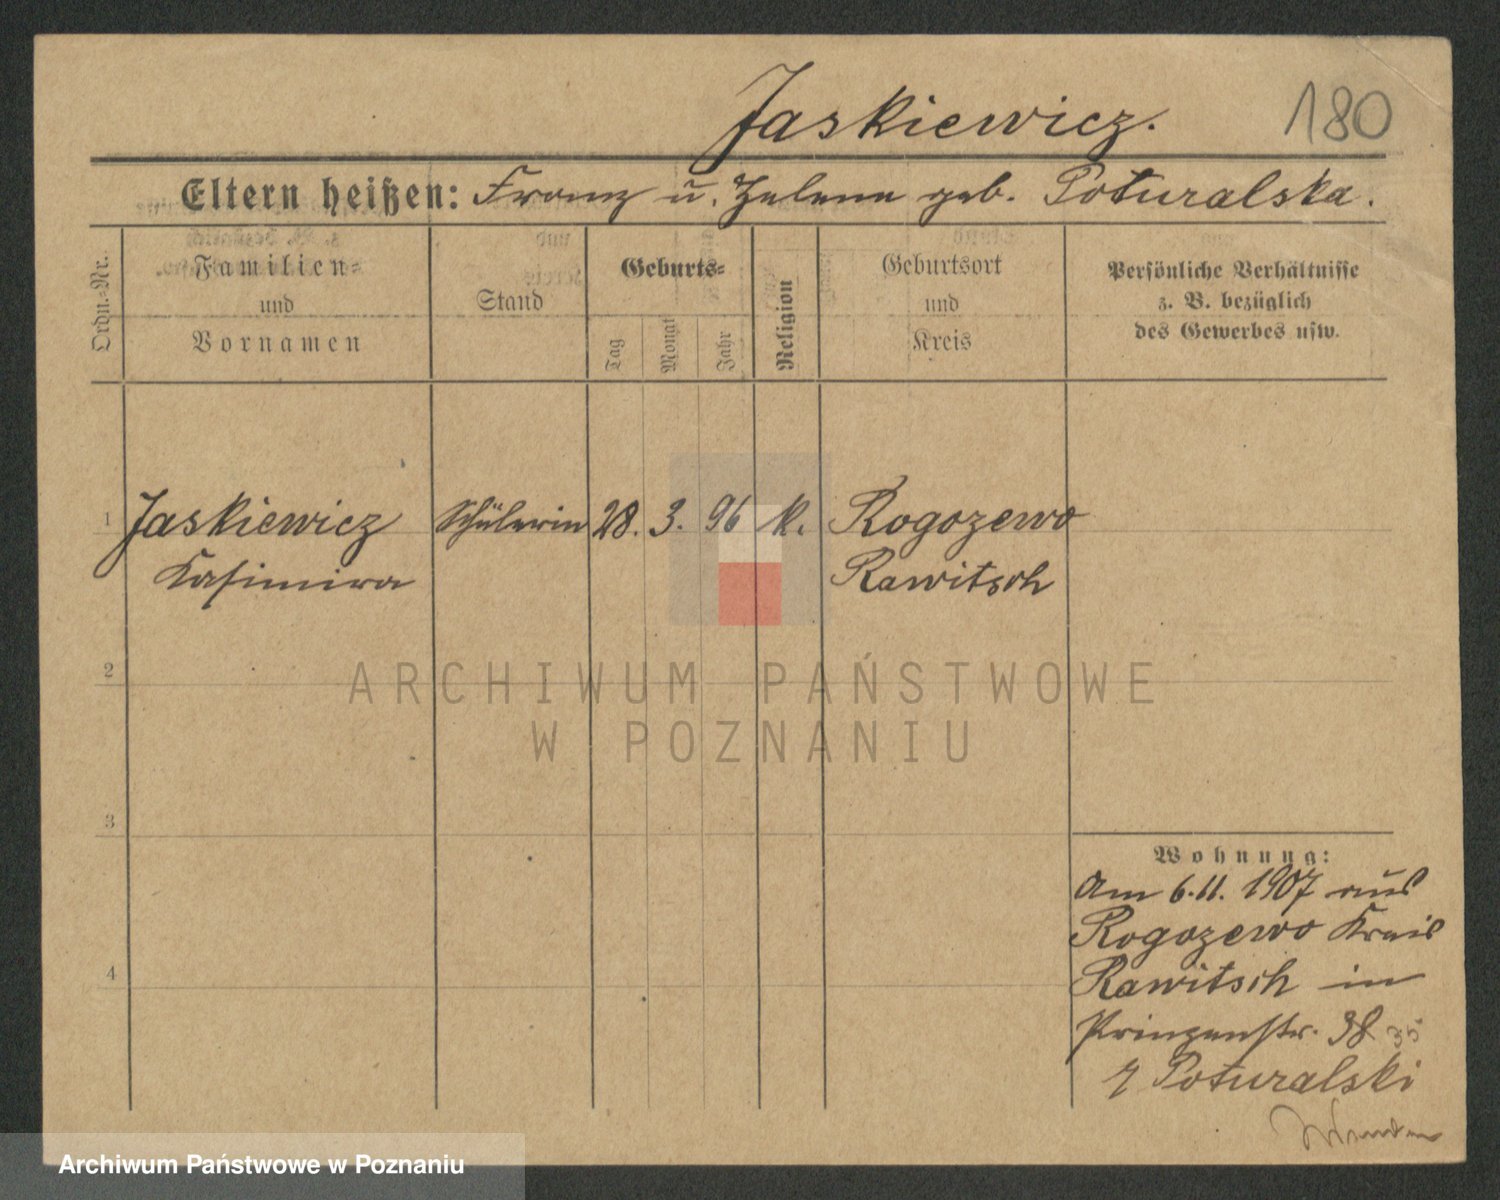 Jaskiewicz.
180
Eltern heißen: Franz u. Helene geb. Poturalska.
Ordn.-Nr.
Familien-
und
Vornamen
Stand
Geburts-
Tag
Monat
Jahr
Religion
Geburtsort
und
Kreis
Persönliche Verhältnisse
z. B. bezüglich
des Gewerbes usw.
1 Jaskiewicz Schülerin 28. 3. 96 k. Rogozewo
Kasimira Rawitsch
2
ARCHIWUM PAŃSTWOWE
W POZNANIU
3
Wohnung:
Am 6.11. 1907 aus
Rogozewo Kreis
Rawitsch in
4
Prinzenstr. 38
Poturalski
Archiwum Państwowe w Poznaniu